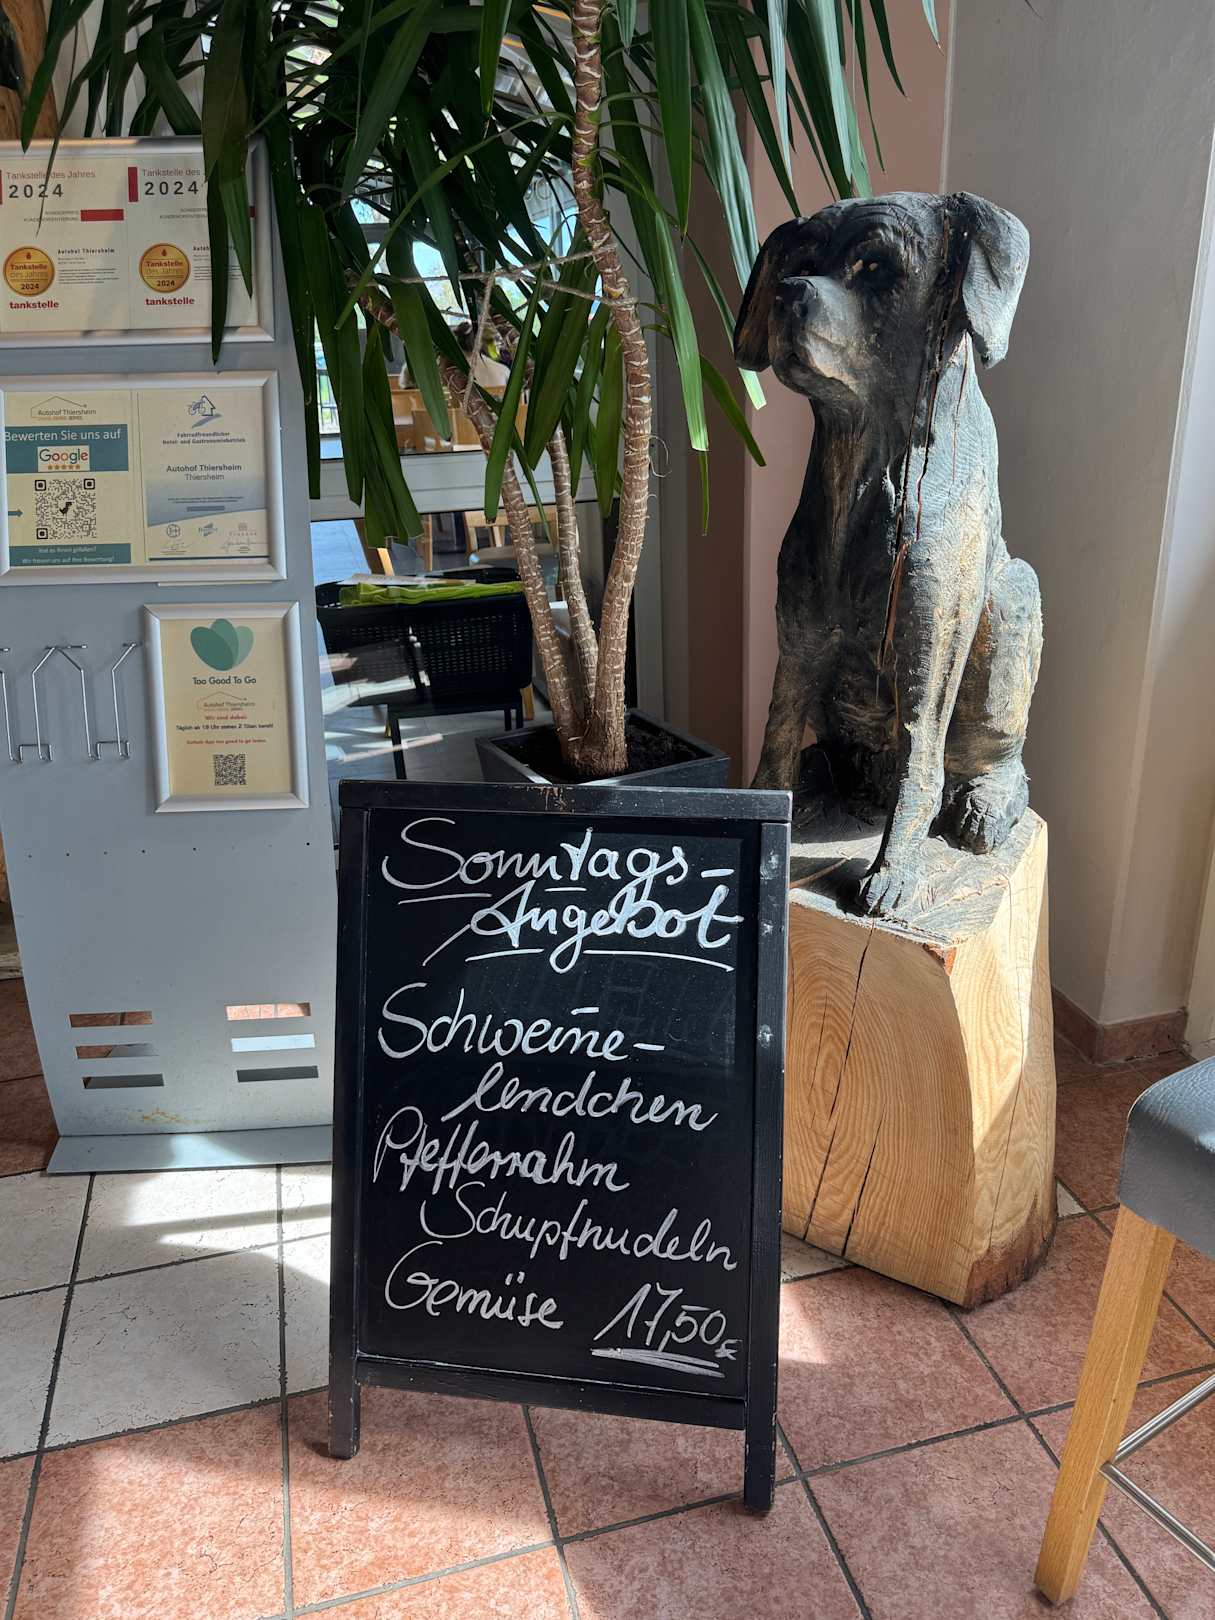 Tankstelle des Jahres
2024
Autohof Thiersheim
Tankstelle
des Jahres
2024
tankstelle
Tankstelle des J
2024
Tankstelle
des Jahres
2024
tankstelle
Autohof Thiersheim
Bewerten Sie uns auf
Google
Hat es Ihnen gefallen?
Wir freuen uns auf Ihre Bewertung!
Fahrradfreundlicher
Hotel- und Gastronomiebetrieb
Autohof Thiersheim
Thiersheim
Too Good To Go
Autohof Thiersheim
Wir sind dabei:
Täglich ab 19 Uhr stehen 2 Tüten bereit!
Einfach App too good to go laden
Sonntags-
Angebot
Schweine-
lendchen
Pfefferrahm
Schupfnudeln
Gemüse 17,50€